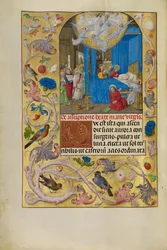 De assumptione beate marie virginis
Que est ista que ascen
dit sicut aurora con
surgens pulcra ut
luna electa ut sol terri
bilis ut castrorum acies ordinata